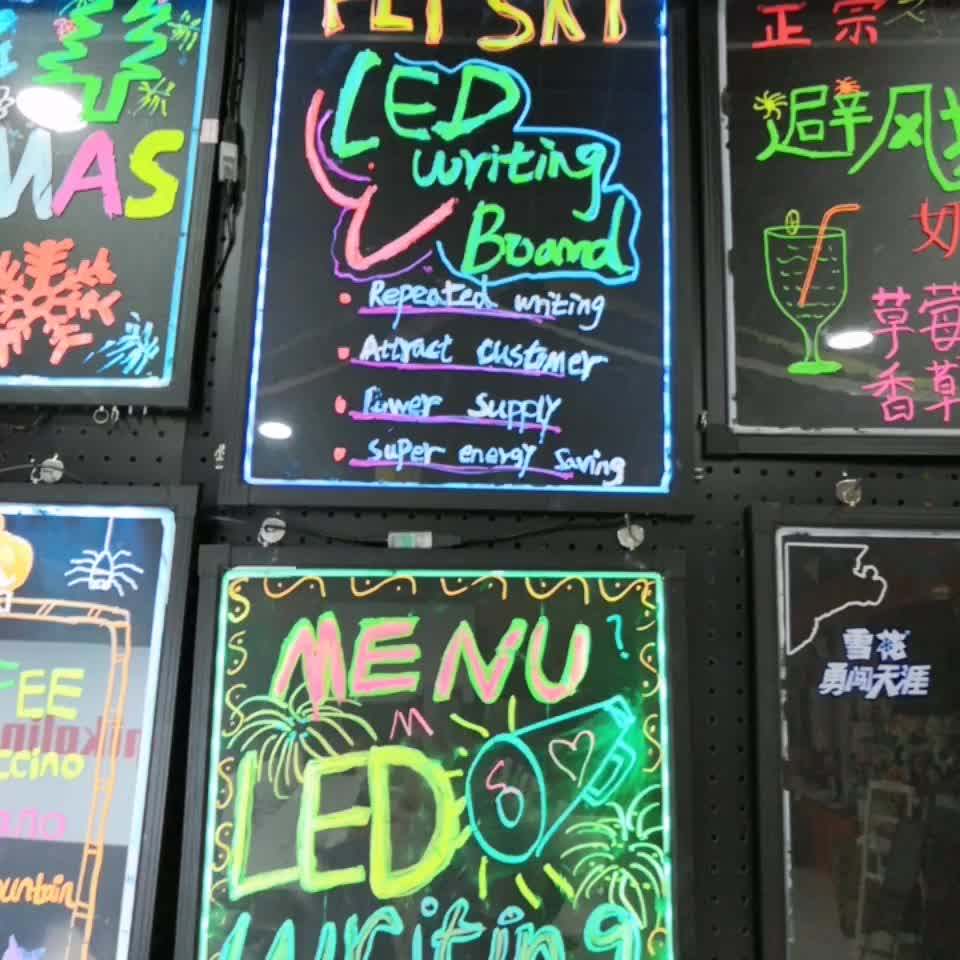 MAS
FLY SKY
LED
writing
Board
Repeated writing
Attract customer
Power Supply
super energy saving
正宗
避风
奶
草莓
香草
FEE
ccino
ano
ountain
MENU
LED
Writing
雪花
勇闯天涯